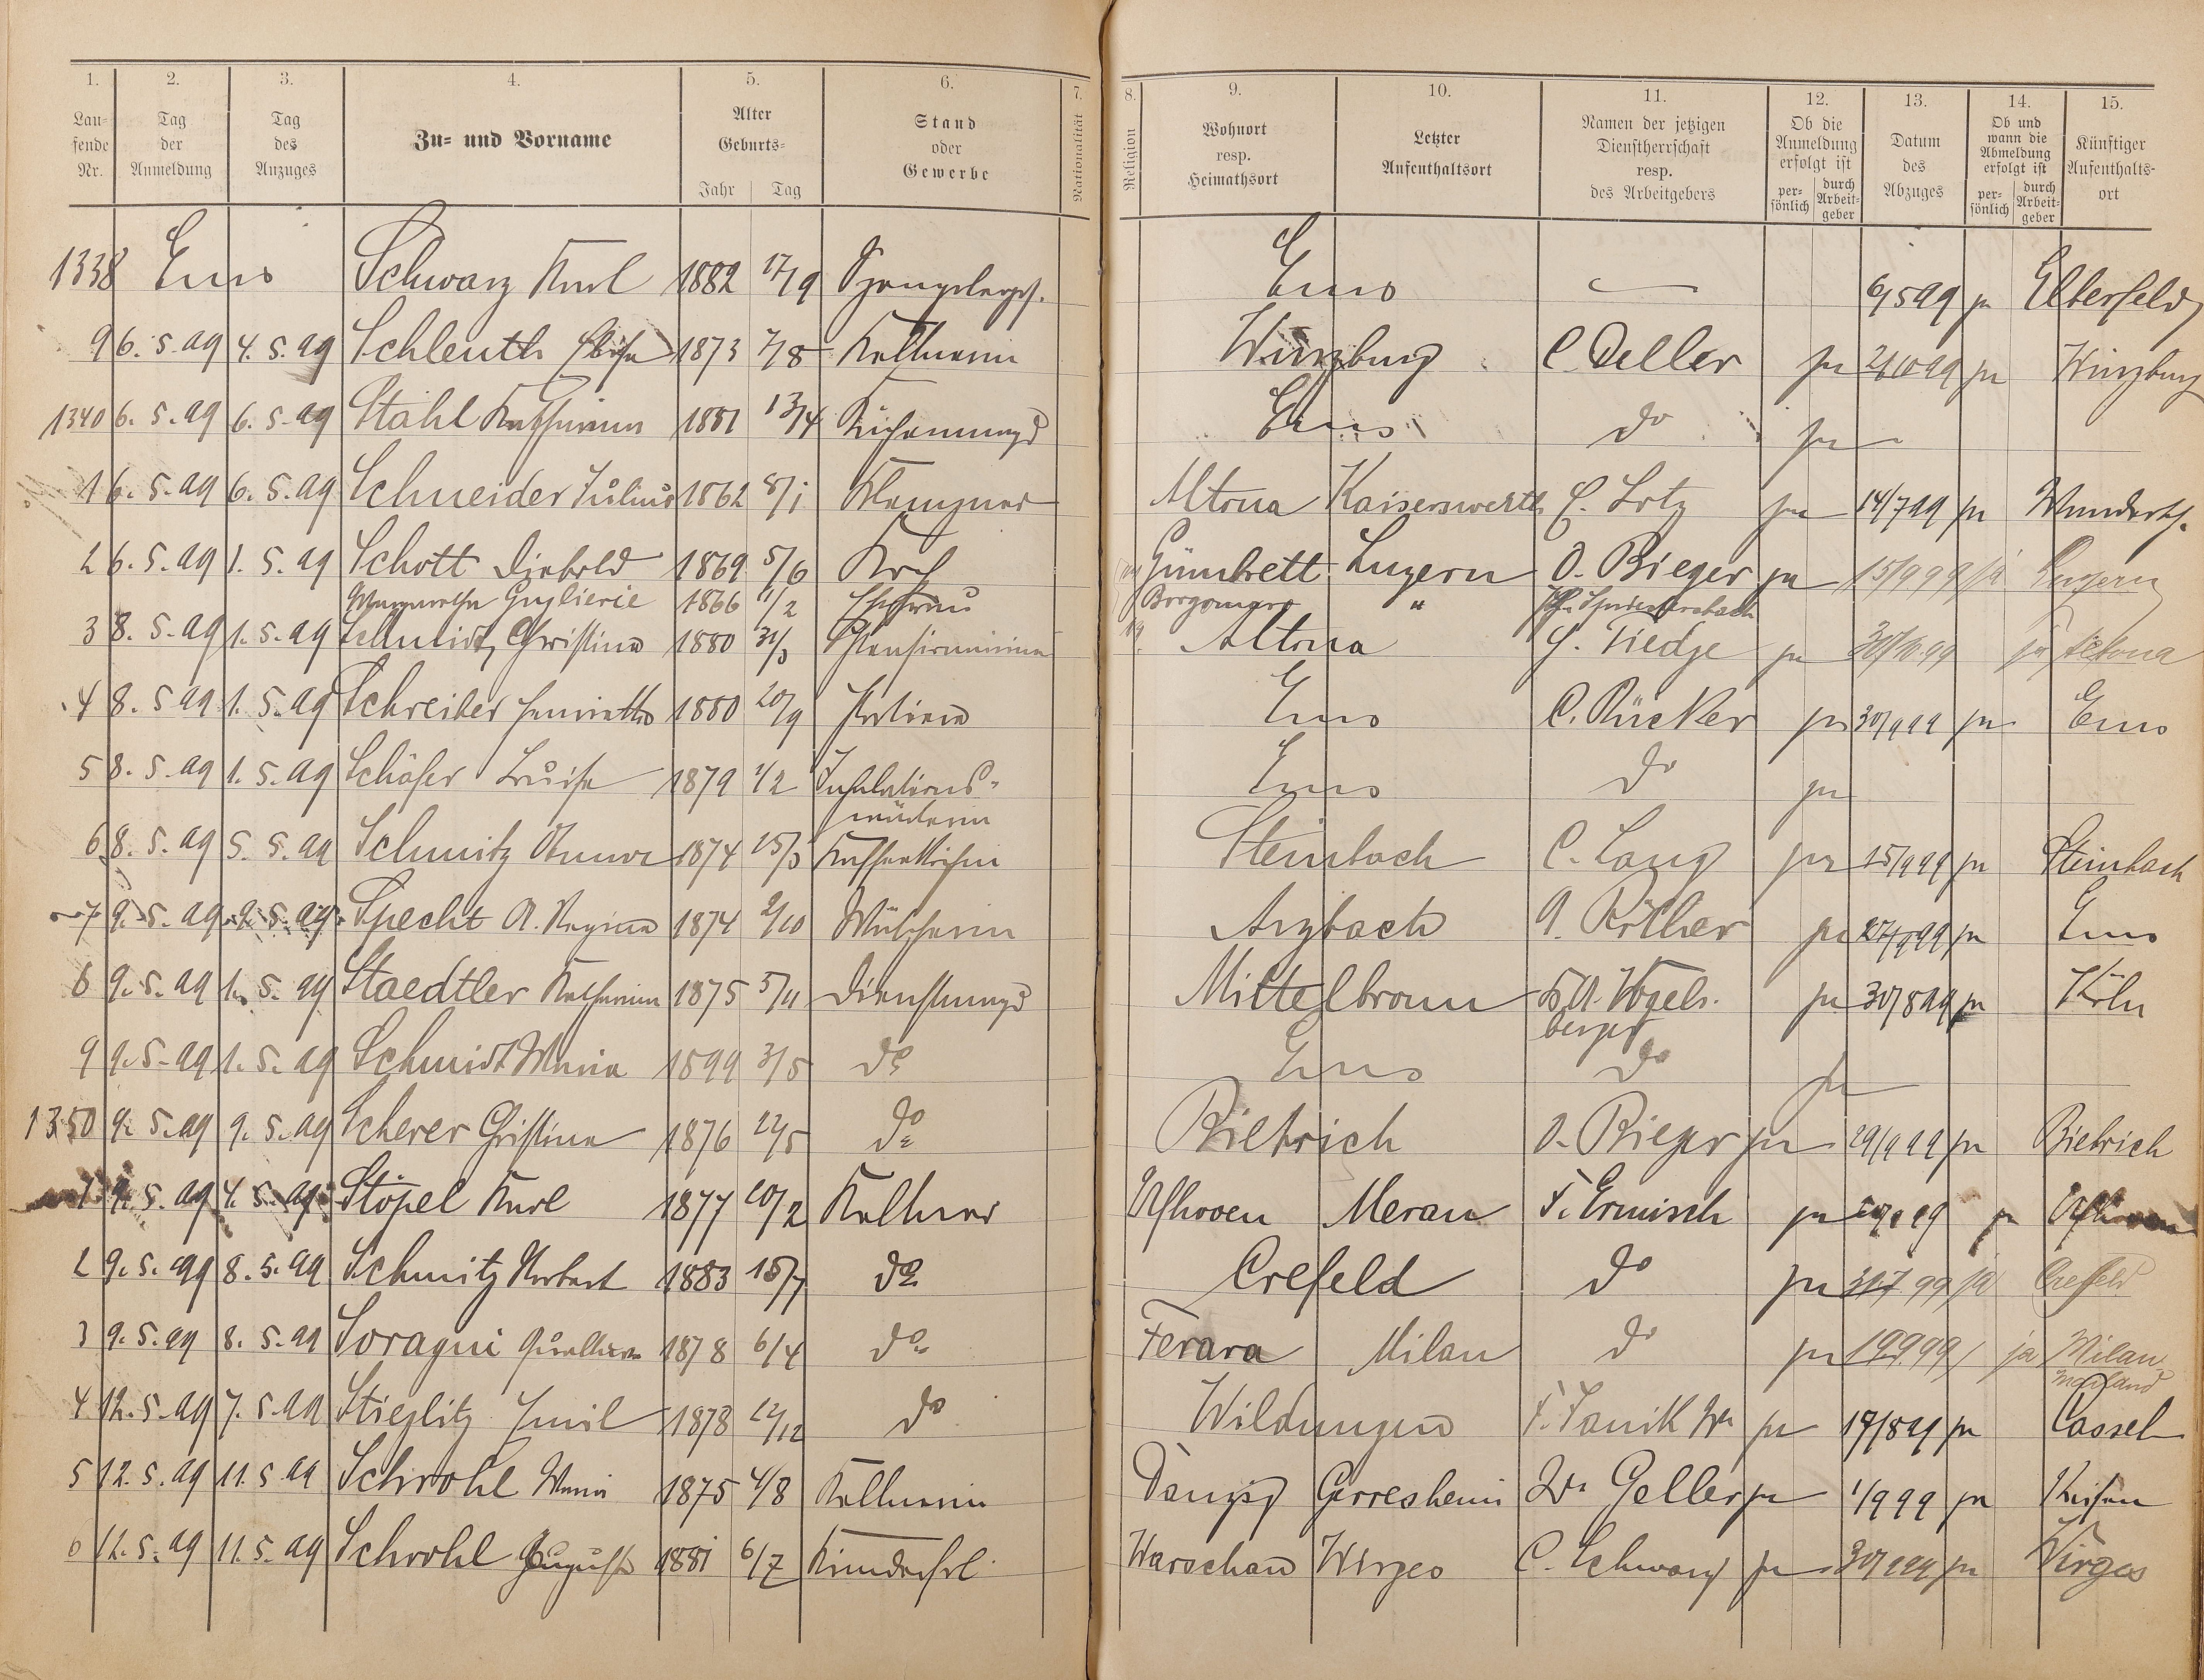 1. 2. 3. 4. 5. 6. 7. 8. 9. 10. 11. 12. 13. 14. 15.
Lau-fende Nr. Tag der Anmeldung Tag des Anzuges Zu- und Vorname Alter Geburts- Jahr Tag Stand oder Gewerbe Nationalität Religion Wohnort resp. Heimathsort Letzter Aufenthaltsort Namen der jetzigen Dienstherrschaft resp. des Arbeitgebers Ob die Anmeldung erfolgt ist per-sönlich durch Arbeit-geber Datum des Abzuges Ob und wann die Abmeldung erfolgt ist per-sönlich durch Arbeit-geber Künftiger Aufenthalts-ort
1338 Ems Schwarz Karl 1882 17/9 Ems — 6/5 99 ja Elberfeld
9 6. 5. 99 4. 5. 99 Schleuth 1873 7/8 Kellnerin Würzburg C. Deller ja ja Würzburg
1340 6. 5. 99 6. 5. 99 Stahl Katharina 1881 13/4 Küchenmagd Ems do ja
1 6. 5. 99 6. 5. 99 Schneider Julius 1862 8/1 Klempner Altona Kaiserswerth C. Lotz ja 14/7 99 ja
2 6. 5. 99 1. 5. 99 Schott Diebold 1869 5/6 Koch Gumbrett Luzern O. Bieger ja 15/9 99 ja Luzern
Margaretha Guglierie 1866 1/2 Ehefrau Borgomaro "
3 8. 5. 99 1. 5. 99 Schmidt, Christina 1880 Altona H. Tiedje ja ja Altona
4 8. 5. 99 1. 5. 99 Schreiber Henriette 1880 20/9 Ems C. Rücker ja 30/9 99 ja Ems
5 8. 5. 99 1. 5. 99 Schäfer Luise 1879 1/2 Inhalations- Ems do ja
wärterin
6 8. 5. 99 5. 5. 99 Schmitz 1874 25/3 Kaffeeköchin Steinbach C. Lang ja 15/9 99 ja Steinbach
7 9. 5. 99 9. 5. 99 Specht A. Regina 1874 2/10 Arzbach A. Röther ja 27/9 99 ja Ems
8 9. 5. 99 1. 5. 99 Staedtler Katharina 1875 5/11 Dienstmagd Mittelbronn Vogels- ja 30/8 99 ja Köln
berger
9 9. 5. 99 1. 5. 99 Schmidt Maria 1899 3/5 do Ems do ja
1350 9. 5. 99 9. 5. 99 Scherer Christina 1876 22/5 do Biebrich O. Bieger ja 29/9 99 ja Biebrich
1 9. 5. 99 4. 5. 99 Stöpel Karl 1877 20/2 Kellner Ufhoven Meran F. Ermisch ja ja Ufhoven
2 9. 5. 99 8. 5. 99 Schmitz Norbert 1883 15/7 do Crefeld do ja 31.7 99 ja Crefeld
3 9. 5. 99 8. 5. 99 Soragni 1878 6/4 do Ferara Milan do ja 19.9.99 ja Milan
Mailand
4 12. 5. 99 7. 5. 99 Stieglitz Emil 1878 22/12 do Wildungen F. Janik Ww ja 17/8 99 ja Cassel
5 12. 5. 99 11. 5. 99 Schrohl Maria 1875 4/8 Kellnerin Danzig Gerresheim Ww Geller ja 1/9 99 ja
6 12. 5. 99 11. 5. 99 Schrohl Auguste 1881 6/7 Kinderfrl. Warschau Wirges C. Schwarz ja 30/9 99 ja Wirges